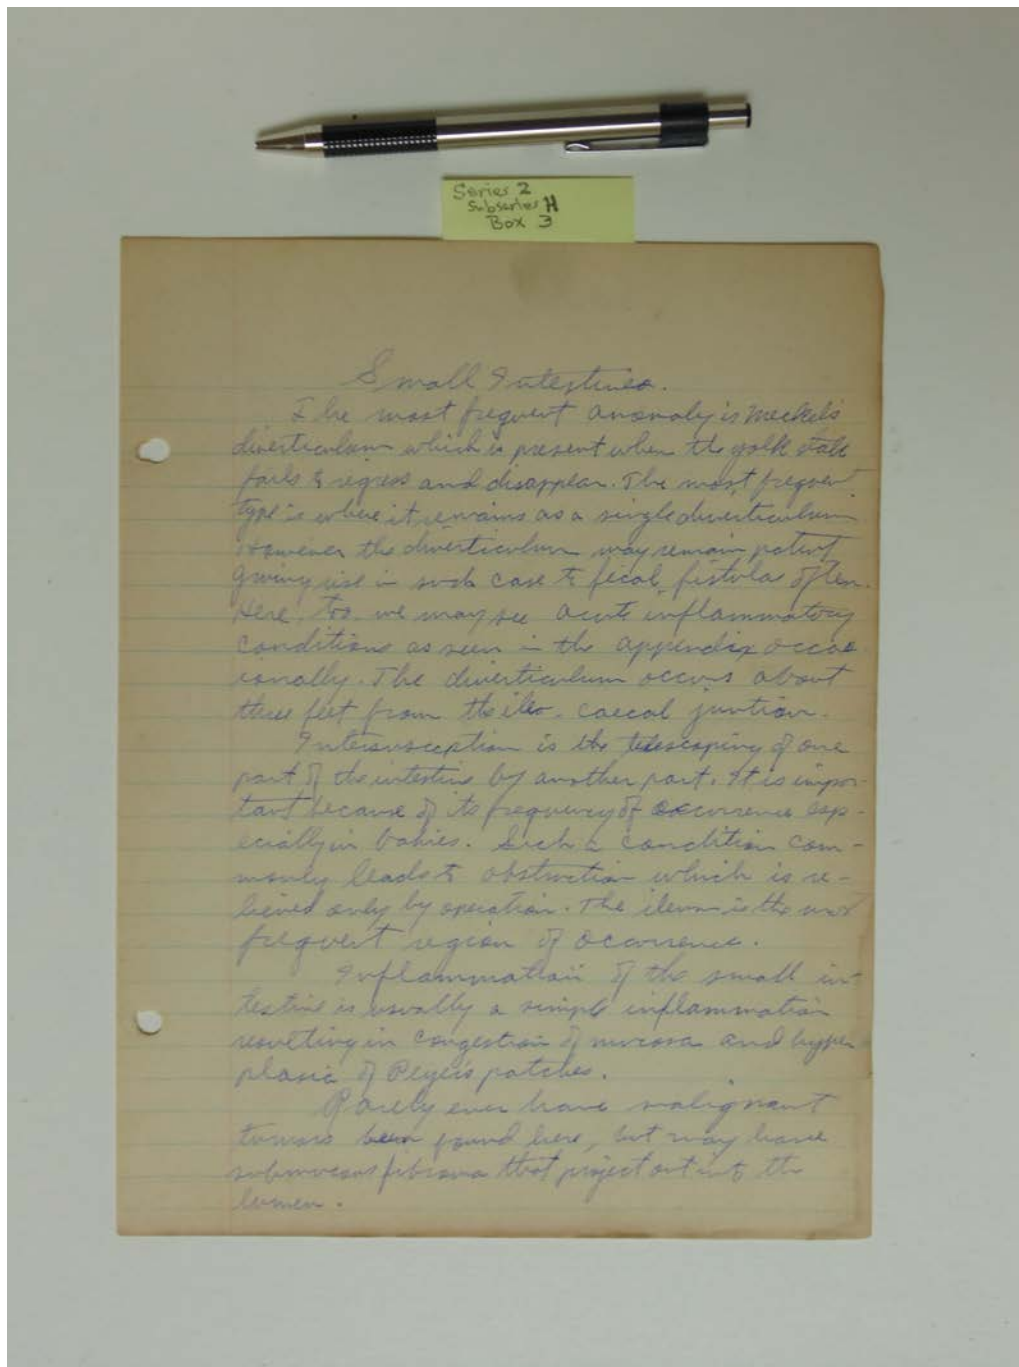 Series 2
Subseries H
Box 3
Small Intestines.
The most frequent anomaly is Meckel's
diverticulum which is present when the yolk stalk
fails to regress and disappear. The most frequent
type is where it remains as a single diverticulum
However the diverticulum may remain patent
giving rise in such case to fecal fistulas often.
Here too we may see acute inflammatory
conditions as seen in the appendix occas-
ionally. The diverticulum occurs about
three feet from the ileo-caecal juntion.
Intussusception is the telescoping of one
part of the intestine by another part. It is impor-
tant because of its frequency of occurrence esp-
ecially in babies. Such a condition com-
monly leads to obstruction which is re-
lieved only by operation. The ileum is the most
frequent region of occurrence.
Inflammation of the small in-
testine is usually a simple inflammation
resulting in congestion of mucosa and hyper-
plasia of Peyer's patches.
Rarely ever have malignant
tumors been found here, but may have
submucous fibroma that project out into the
lumen.